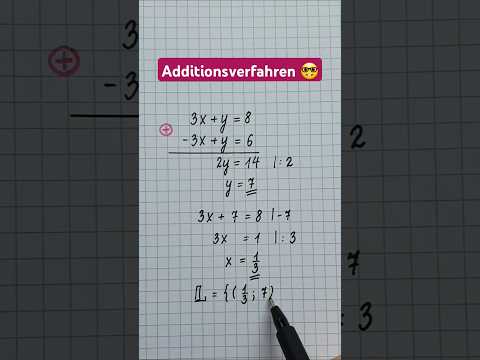 Additionsverfahren 🤓
3x + y = 8
⊕
- 3x + y = 6
2y = 14 | : 2
y = 7
3x + 7 = 8 | - 7
3x = 1 | : 3
x = 1/3
𝕃 = {( 1/3 ; 7)
3
⊕
- 3
2
7
3